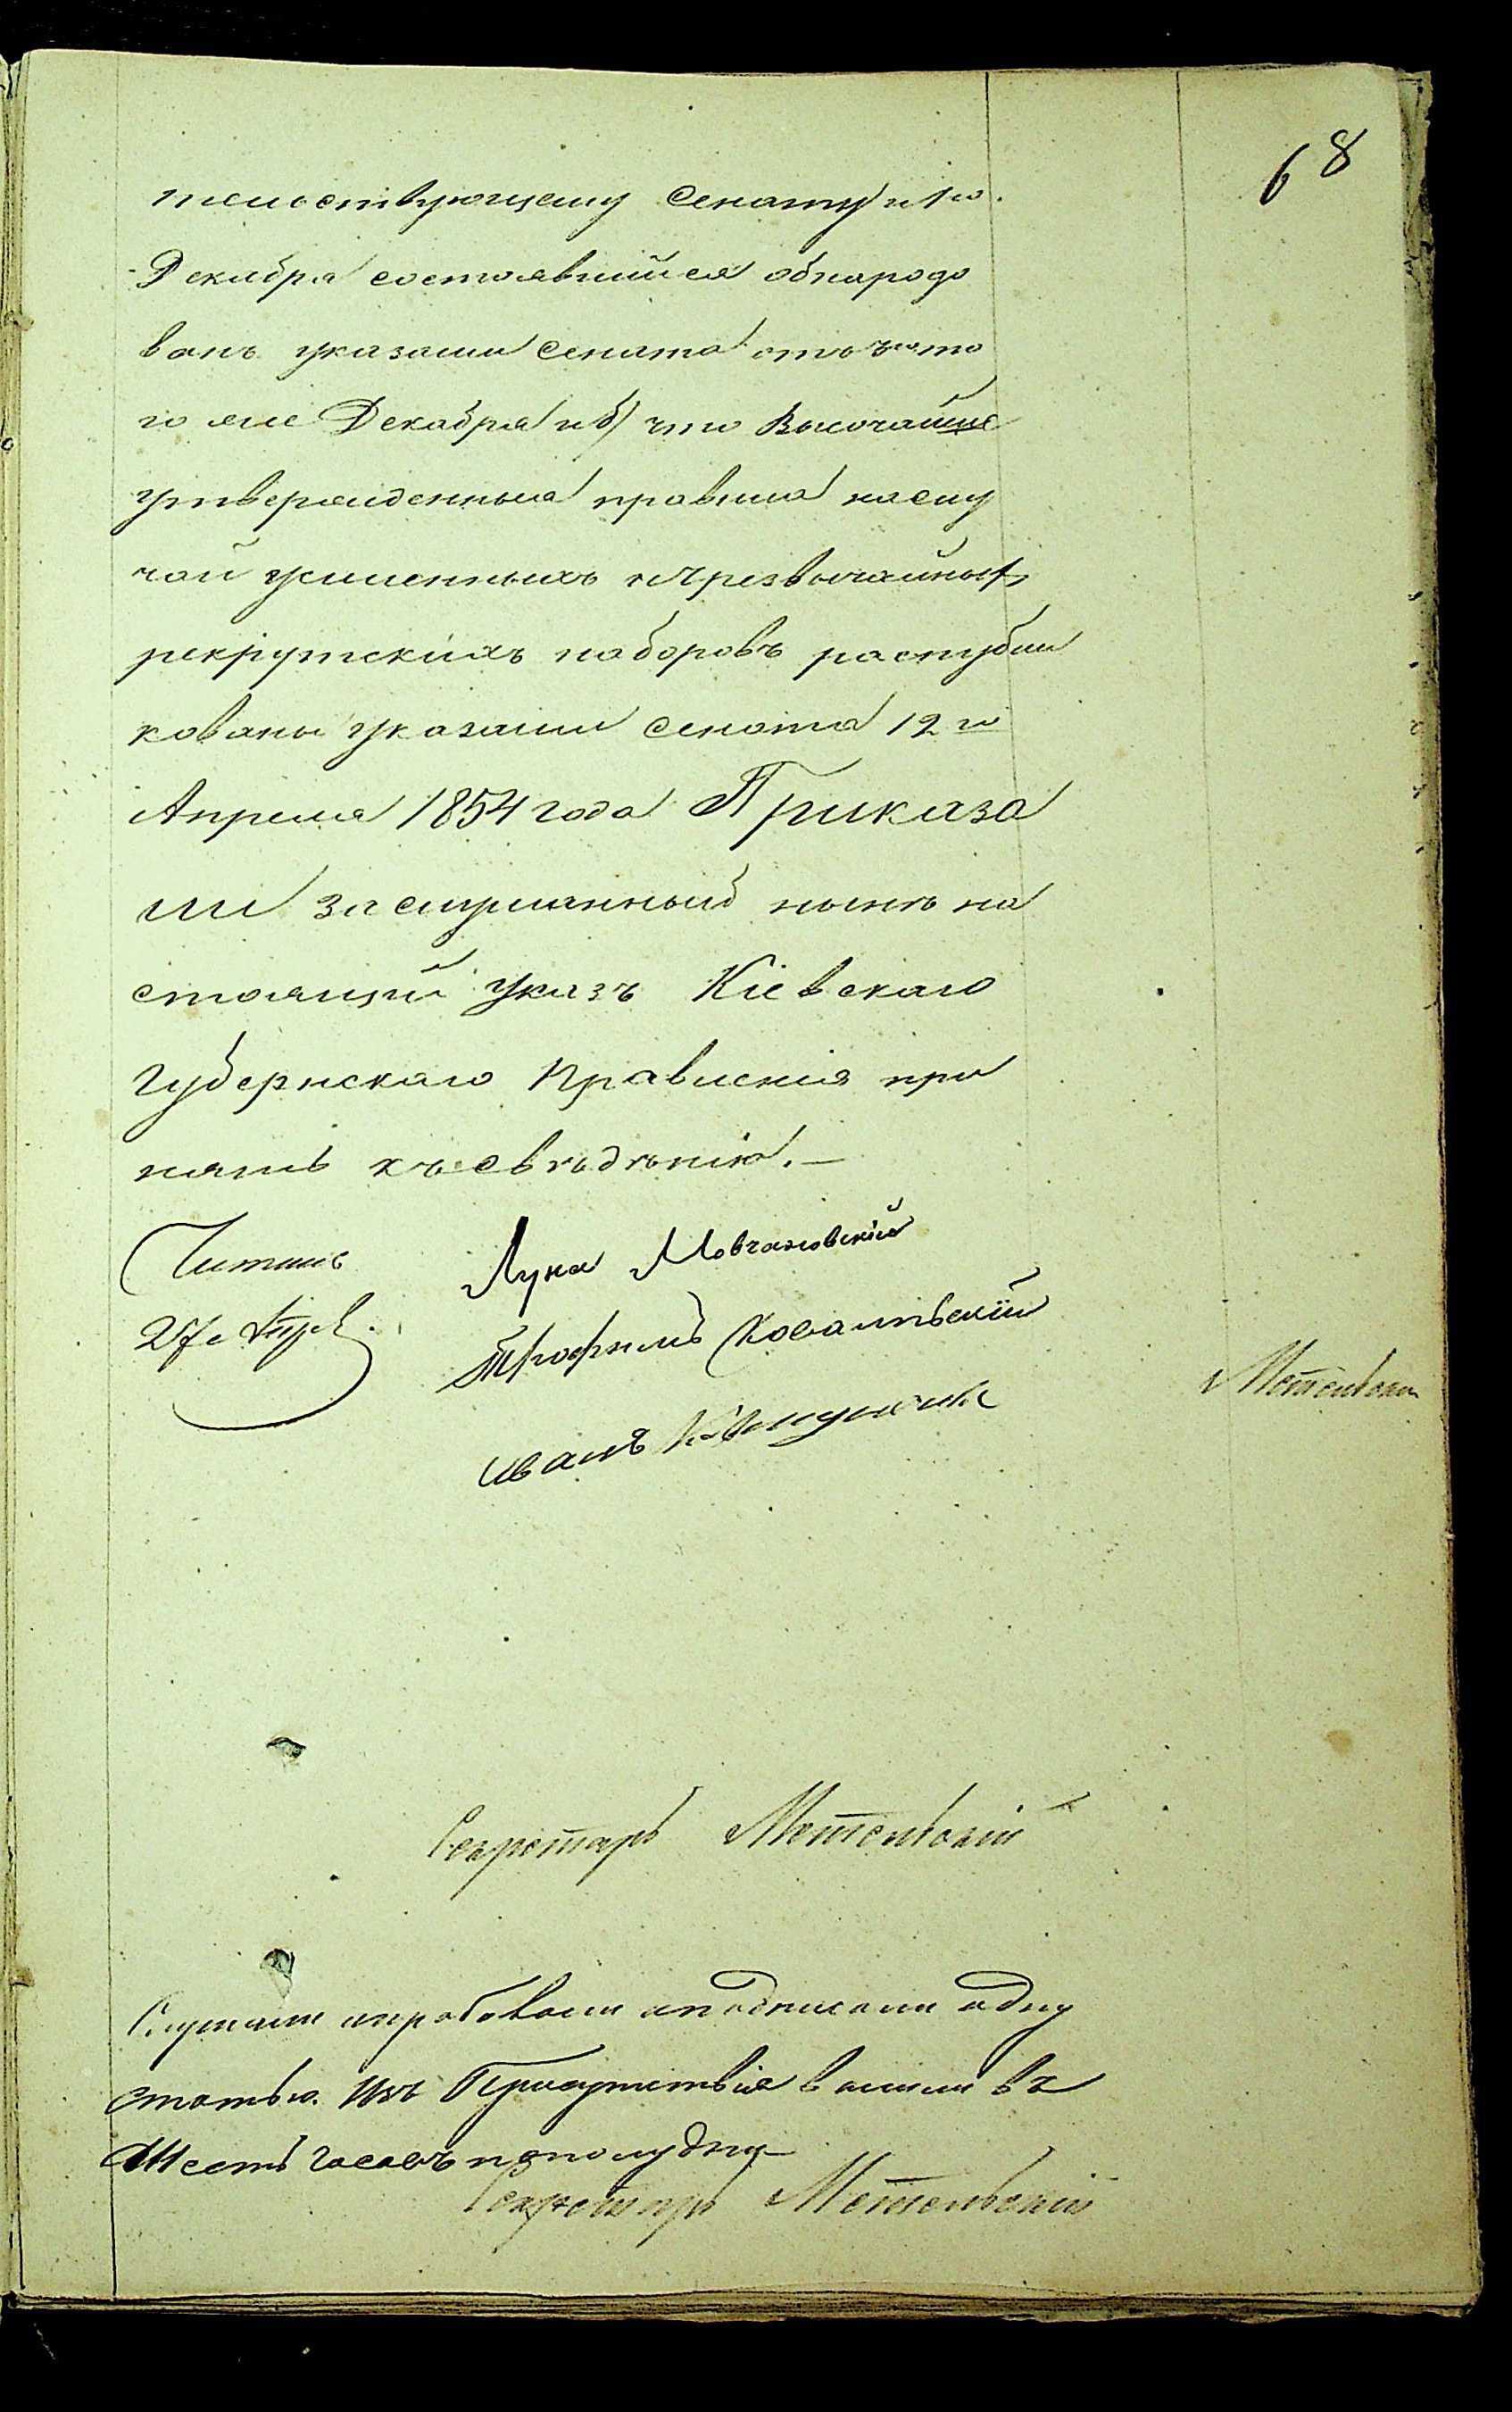 68
тельствующему Сенату и 1го
Декабря состоявшийся обнародо
ванъ указами Сената отъ того
го же Декабря и б) что Высочайше
утвержденныя правила на слу
чай усиленныхъ и чрезвычайныхъ
рекрутскихъ наборовъ распубли
кованы указами Сената 12го
Апреля 1854 года Приказа
ли заслушанный нынѣ на
стоящій указъ Кіевскаго
Губернскаго Правленія при
нять къ свѣдѣнію. —
Читалъ
Лука Мовчановскій
Трофимъ Ковальскій
Метельскій
Иванъ
Секретарь Метельскій
Слушали апробовали и подписали одну
статью. Изъ Присутствія вышли въ
Шесть часовъ пополудни
Секретарь Метельскій